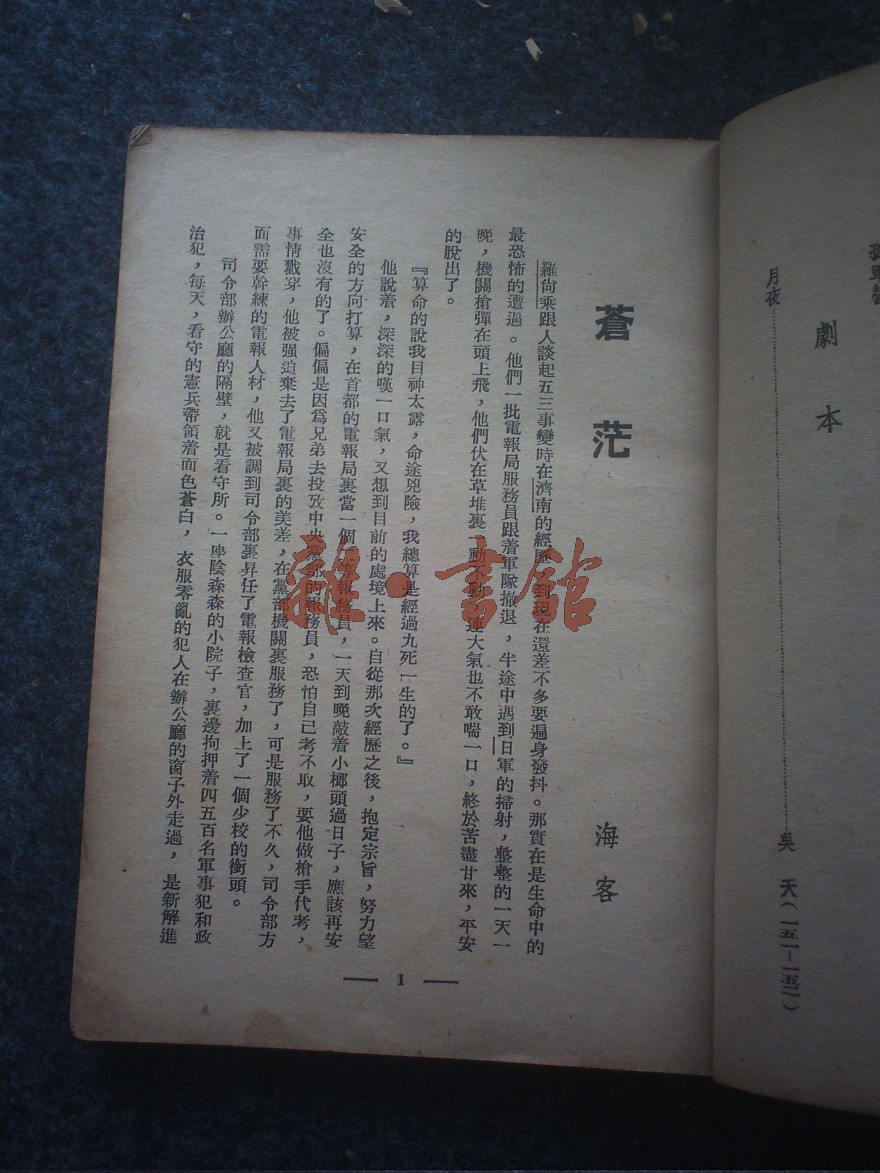 劇本
月夜……吳天(一五一—一五二)
蒼茫
海客
羅尙乘跟人談起五三事變時在濟南的經歷,到現在還差不多要遍身發抖。那實在是生命中的
最恐怖的遭遇。他們一批電報局服務員跟着軍隊撤退,半途中遇到旧軍的掃射,整整的一天一
晚,機關槍彈在頭上飛,他們伏在草堆裏一動不動,連大氣也不敢喘一口,終於苦盡甘來,平安
的脫出了。
『算命的說我目神太露,命途兇險,我總算是經過九死一生的了。』
他說着,深深的嘆一口氣,又想到目前的處境上來。自從那次經歷之後,抱定宗旨,努力望
安全的方向打算,在首都的電報局裏當一個二等報務員,一天到晚敲着小榔頭過日子,應該再安
全也沒有的了。偏偏是因爲兄弟去投攷中央黨部的報務員,恐怕自己考不取,要他做槍手代考,
事情戳穿,他被强迫棄去了電報局裏的美差,在黨部機關裏服務了,可是服務了不久,司令部方
面需要幹練的電報人材,他又被調到司令部裏昇任了電報檢查官,加上了一個少校的銜頭。
司令部辦公廳的隔壁,就是看守所。一座陰森森的小院子,裏邊拘押着四五百名軍事犯和政
治犯,每天,看守的憲兵帶領着面色蒼白,衣服零亂的犯人在辦公廳的窗子外走過,是新解進
— 1 —
龍·書館